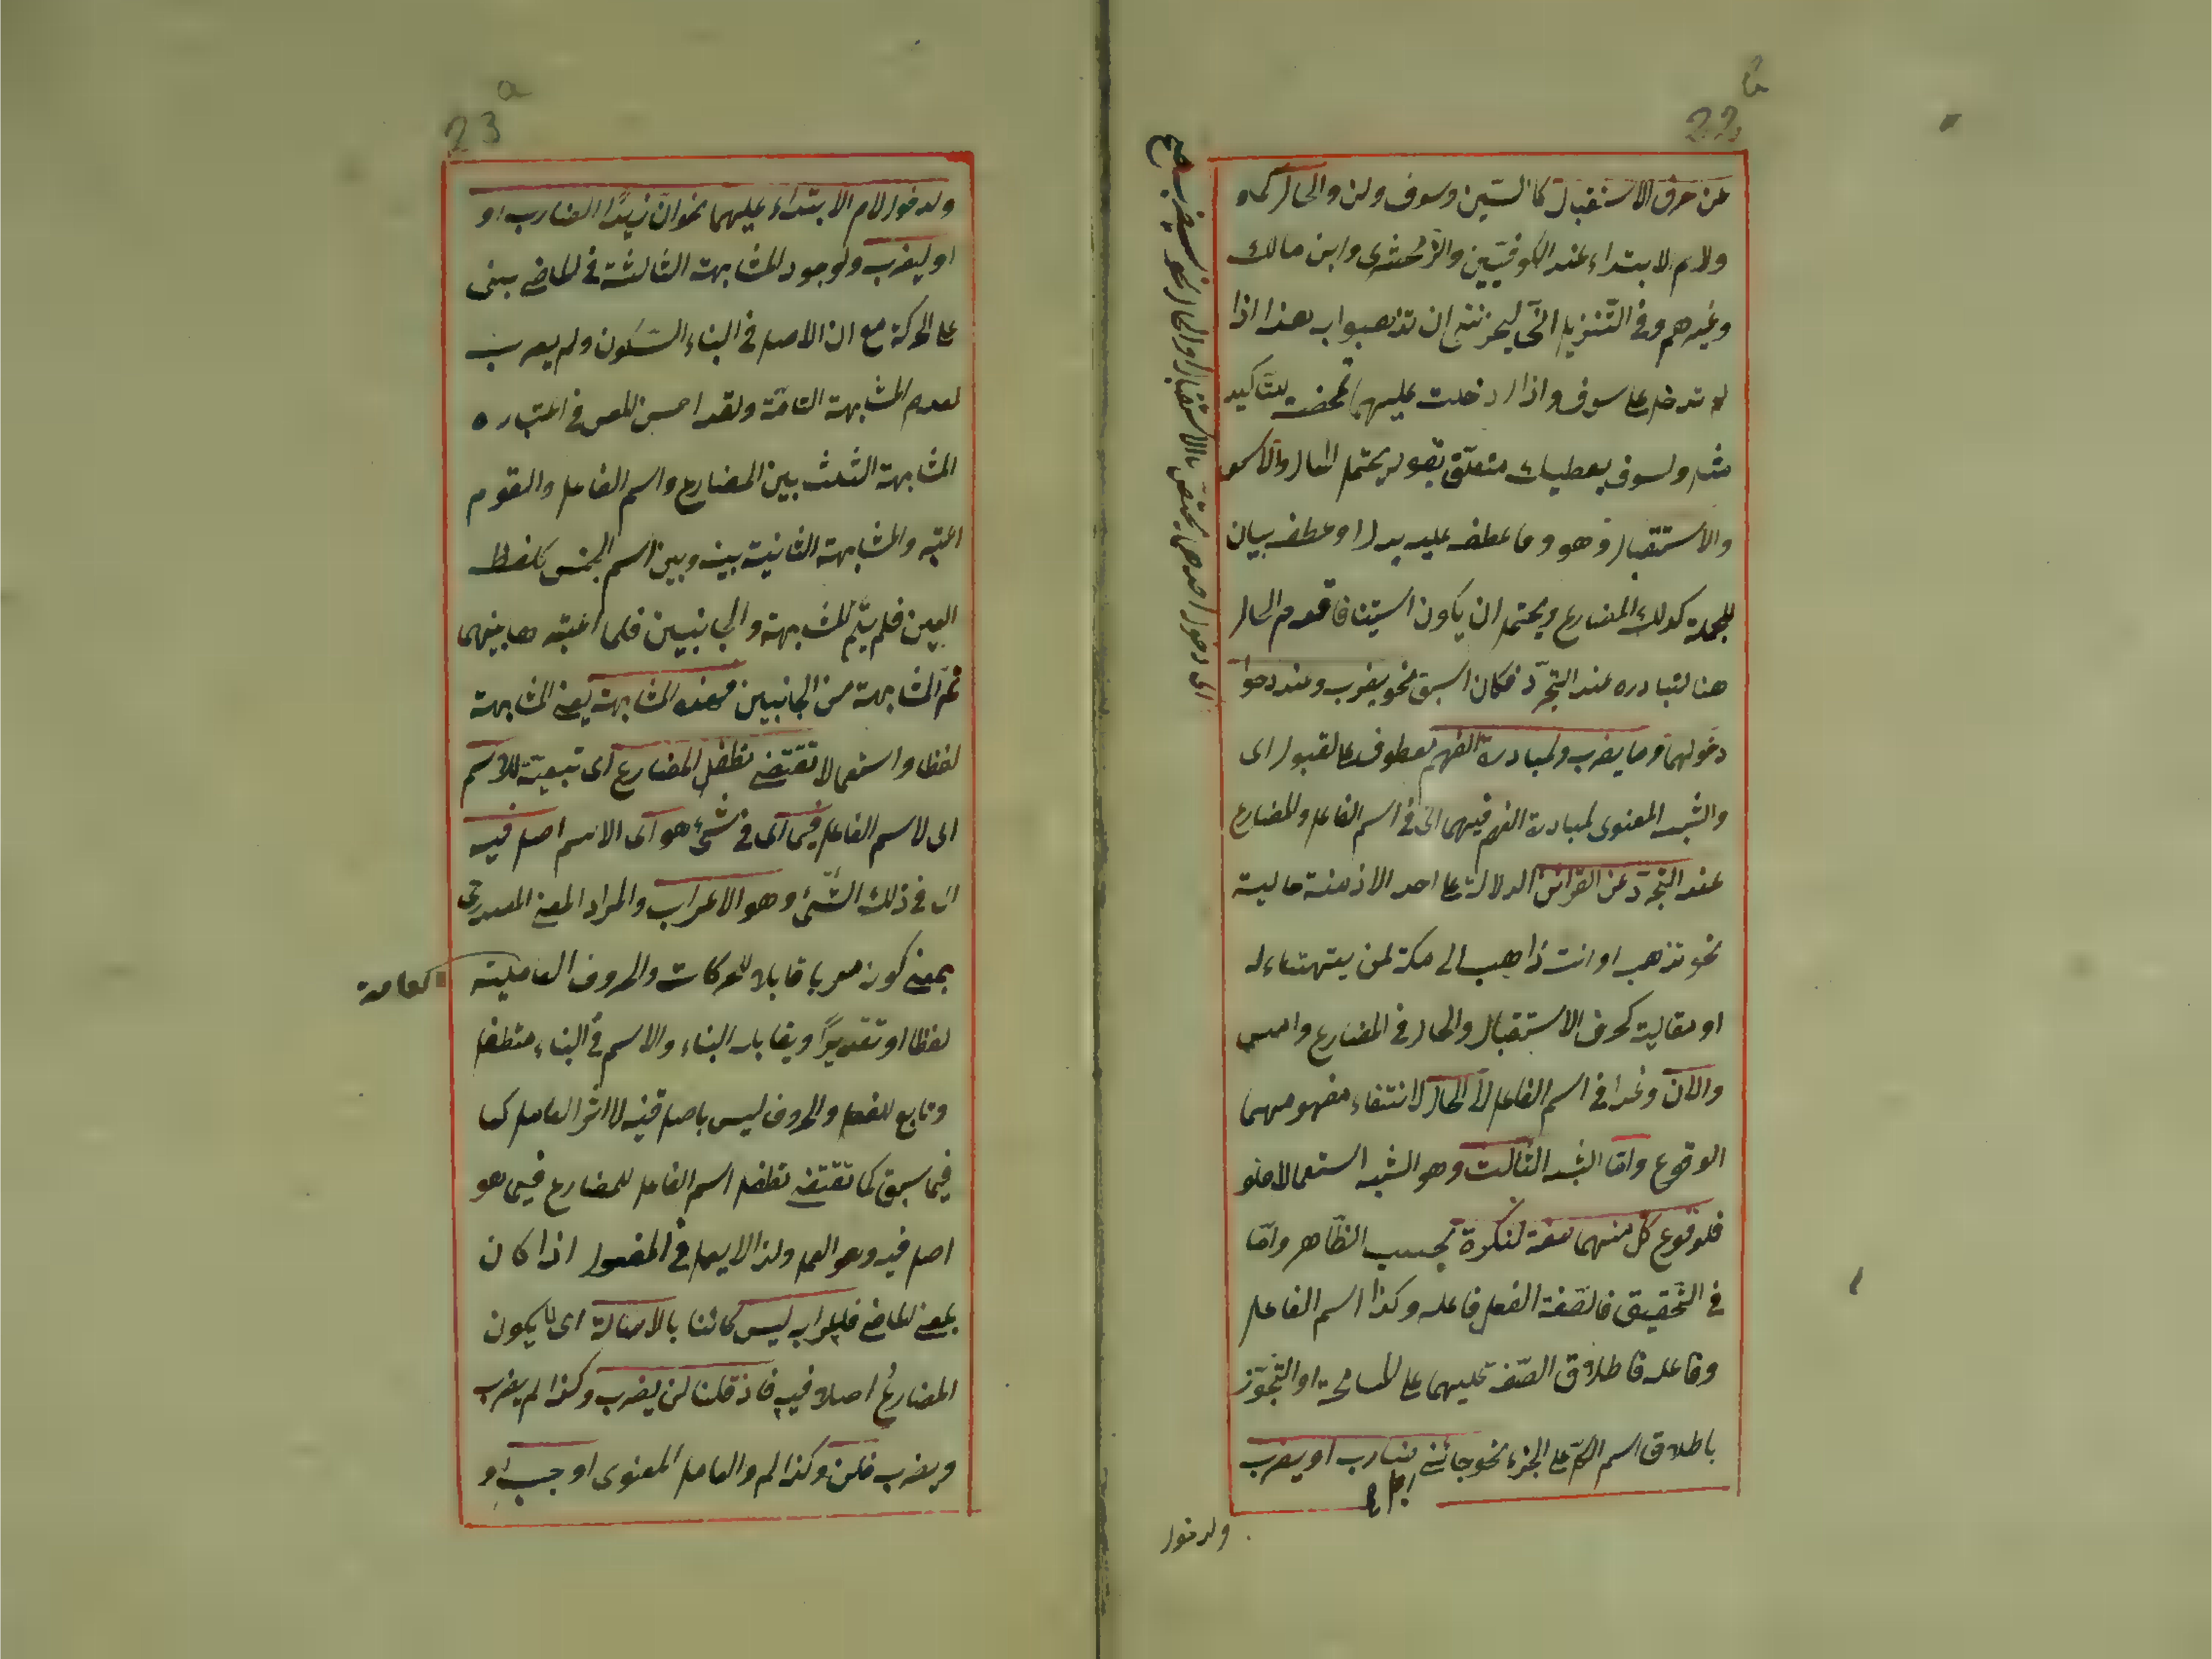 22b
عن حرف الاستقبال كالسّين وسوف ولن والحال كما
ولام الابتداء عند الكوفيّين والزّمخشرى وابن مالك
وغيرهم وفى التّنزيل انّى ليحزننى ان تذهبوا به هذا اذا
لم تدخل على سوف واذا دخلت عليها تمحضت للتّاكيد
مثل ولسوف يعطيك متعلّق بقوله يحتمل الحال والاستـ
والاستقبال وهو وما عطف عليه بدل او عطف بيان
للجملة كذلك المضارع ويحتمل ان يكون استينافا قدم الحال
هنا لتبادره عند التجرّد فكان اسبق نحو يضرب وعند دخول
دخولهما وما يضرب ولمبادرة الفهم معطوف على لقبول اى
والشّبه المعنوى لمبادرة الفهم فيهما اى فى اسم الفاعل والمضارع
عند التّجرّد عن القرائن الدلالة على احد الازمنة حالية
نحو تذهب او انت ذاهب الى مكة لمن يتهيّاء له
او مقالية كحرف الاستقبال والحال فى المضارع وامس
والآن وغدا فى اسم الفاعل الى الحال لانتفاء مفهومهما
الوقوع وامّا الشّبه الثّالث وهو الشّبه استعمالا فلو
فلوقوع كلّ منهما صفة لنكرة بحسب الظّاهر وامّا
فى التّحقيق فالصّفة الفعل فاعله وكذا اسم الفاعل
وفاعله فاطلاق الصّفة عليهما على المسامحة او التّجوّز
باطلاق اسم الكلّ على الجزء نحو جائنى ضارب او يضرب
ولدخول
اى دخول احدهن يختص بالاستقبال والحال نحو سيضرب صح
23a
ولدخول لام الابتداء عليهما نحو انّ زيدًا لضارب او
او ليضرب ولوجود المشابهة الثّالثة فى الماضى بنى
على الحركة مع ان الاصل فى البناء السّكون ولم يعرب
لعدم المشابهة التامّة ولقد احسن المص فى اعتباره
المشابهة الثلث بين المضارع واسم الفاعل والقوم
اعتبر والمشابهة الثانية بينه وبين اسم الجنس كلفظ
العين فلم يتمّ المشابهة والجانبين فلما اعتبره ها بينهما
تمّ المشابهة من الجانبين فهذه المشابهة يعنى المشابهة
لفظا واستعمالا تقتضى تطفل المضارع اى تبعيّة للاسم
اى لاسم الفاعل فيما اى فى شىء هو اى الاسم اصل فيه
اى فى ذلك الشّىء وهو الاعراب والمراد المعنى المصدرى
بمعنى كونه معربا قابلا للحركات والحروف العاملية
العامة
لفظا او تقديرًا ويقابله البناء والاسم فى البناء متطفل
وتابع للفعل والحروف ليس باصل فيه لا اثر العامل كما
فيما سبق كما تقتضى تطفل اسم الفاعل للمضارع فيما هو
اصل فيه وهو العمل ولذا لا يعمل فى المفعول اذا كان
بمعنى الماضى فاعرابه ليس كائنا بالاصالة اى لا يكون
المضارعُ اصلا فيه فاذ قلنا لن يضرب وكذا لم يضرب
ويضرب فلن وكذا لم والعامل المعنوى اوجب او